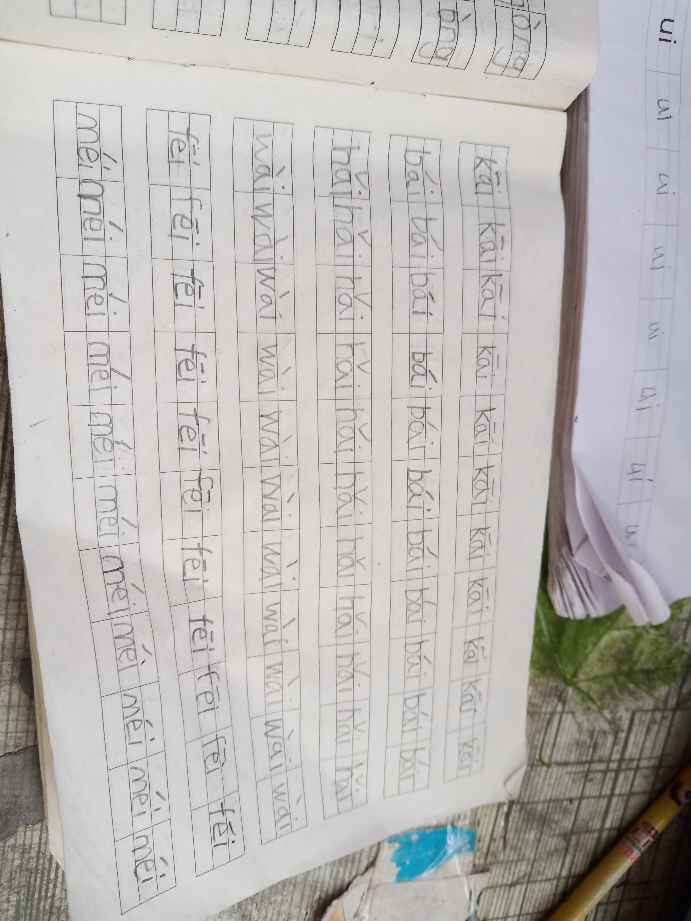 ui ui ui ui ui ui ui ui
òng
òng
kāi kāi kāi kāi kāi kāi kāi kāi kāi kāi kāi
bái bái bái bái bái bái bái bái bái bái bái
hǎi hǎi hǎi hǎi hǎi hǎi hǎi hǎi hǎi hǎi hǎi
wài wài wài wài wài wài wài wài wài wài wài
fēi fēi fēi fēi fēi fēi fēi fēi fēi fēi fēi
méi méi méi méi méi méi méi méi méi méi méi